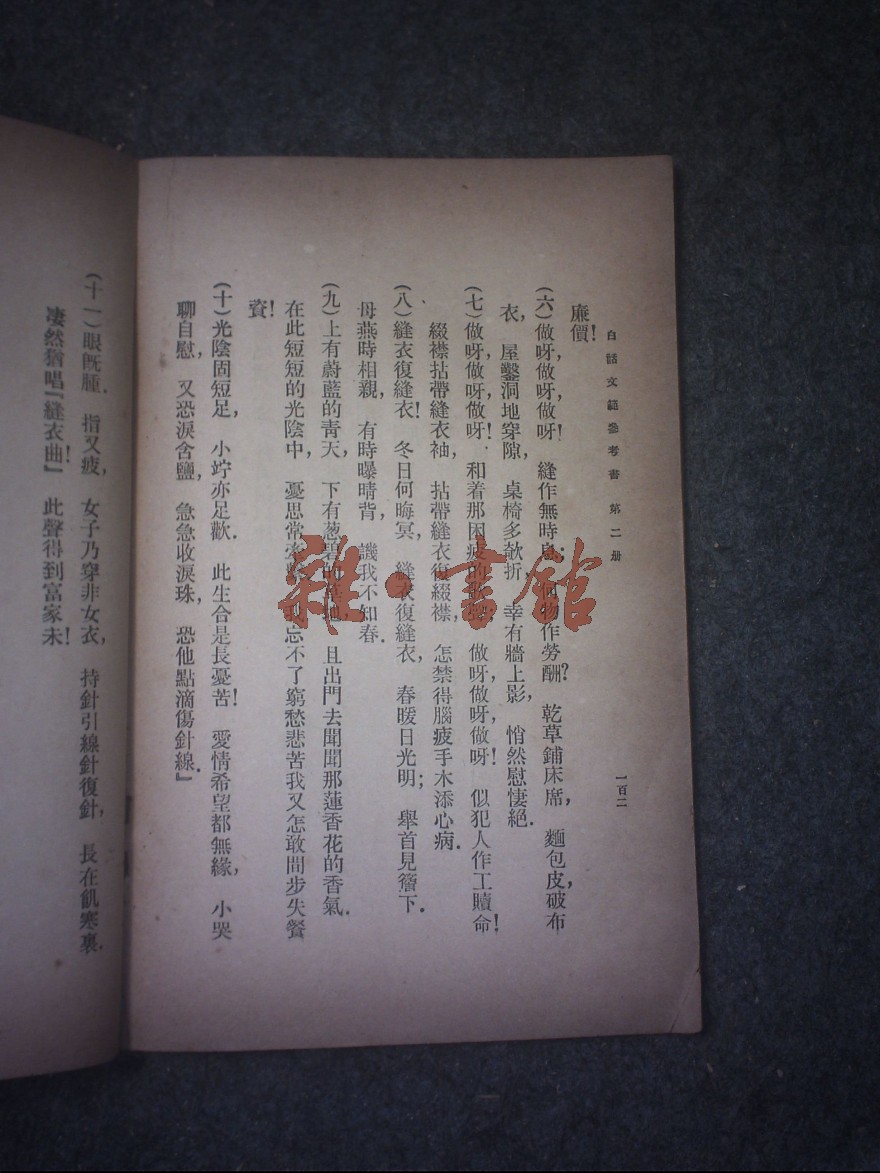 白話文範參考書 第二册
一百二
廉價!
(六)做呀,做呀,做呀! 縫作無時息; 何物作勞酬? 乾草鋪床席, 麵包皮,破布
衣, 屋鑿洞地穿隙, 桌椅多欹折, 幸有牆上影, 悄然慰悽絕.
(七)做呀,做呀,做呀! 和着那困疲的歌聲, 做呀,做呀,做呀! 似犯人作工贖命!
綴襟拈帶縫衣袖, 拈帶縫衣復綴襟, 怎禁得腦疲手木添心病.
(八)縫衣復縫衣! 冬日何晦冥, 縫衣復縫衣, 春暖日光明; 舉首見簷下.
母燕時相親, 有時曝晴背, 譏我不知春.
(九)上有蔚藍的青天, 下有葱碧的 且出門去聞聞那蓮香花的香氣.
在此短短的光陰中, 憂思常 我忘不了窮愁悲苦我又怎敢間步失餐
資!
(十)光陰固短足, 小竚亦足歡. 此生合是長憂苦! 愛情希望都無緣, 小哭
聊自慰, 又恐淚含鹽, 急急收淚珠, 恐他點滴傷針線.』
(十一)眼既腫. 指又疲, 女子乃穿非女衣, 持針引線針復針, 長在飢寒裏.
凄然猶唱『縫衣曲!』 此聲得到富家未!
雜·書館